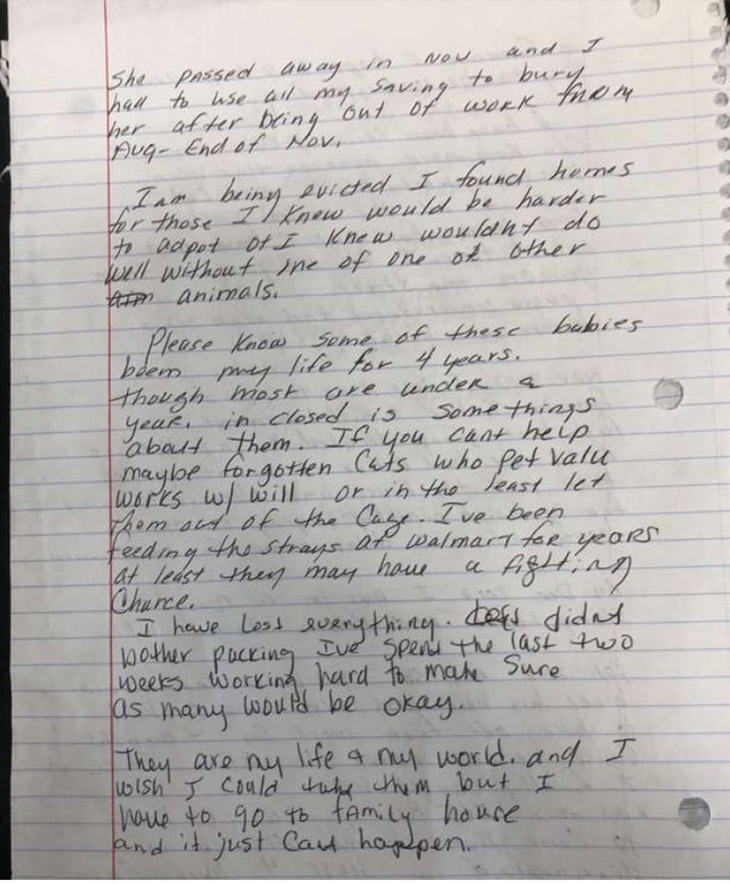 She passed away in Nov and I
had to use all my saving to bury
her after being out of work from
Aug - End of Nov.
I am being evicted I found homes
for those I knew would be harder
to adpot of I knew wouldnt do
well without me of one of other
animals.
Please know some of these babies
been my life for 4 years.
though most are under a
year. in closed is some things
about them. If you cant help
maybe forgotten Cats who Pet Valu
works w/ will or in the least let
them out of the Cage. I've been
feeding the strays at walmart for years
at least they may have a fighting
Chance.
I have Loss everything. didnt
bother packing Ive spent the last two
weeks working hard to make Sure
as many would be okay.
They are my life & my world. and I
wish I could take them but I
have to go to family house
and it just Cant happen.